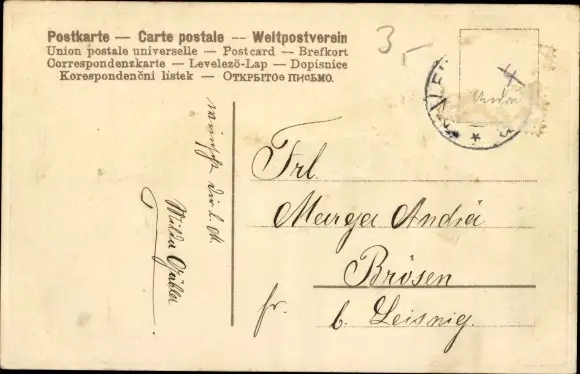 Postkarte — Carte postale — Weltpostverein
Union postale universelle — Postcard — Brefkort
Correspondenzkarte — Levelezö-Lap — Dopisnice
Korespondenční lístek — Открытое письмо.
3,-
wünscht Dir l. M.
Milda
Frl.
Marga Andrä
Brösen
fr. b. Leisnig.